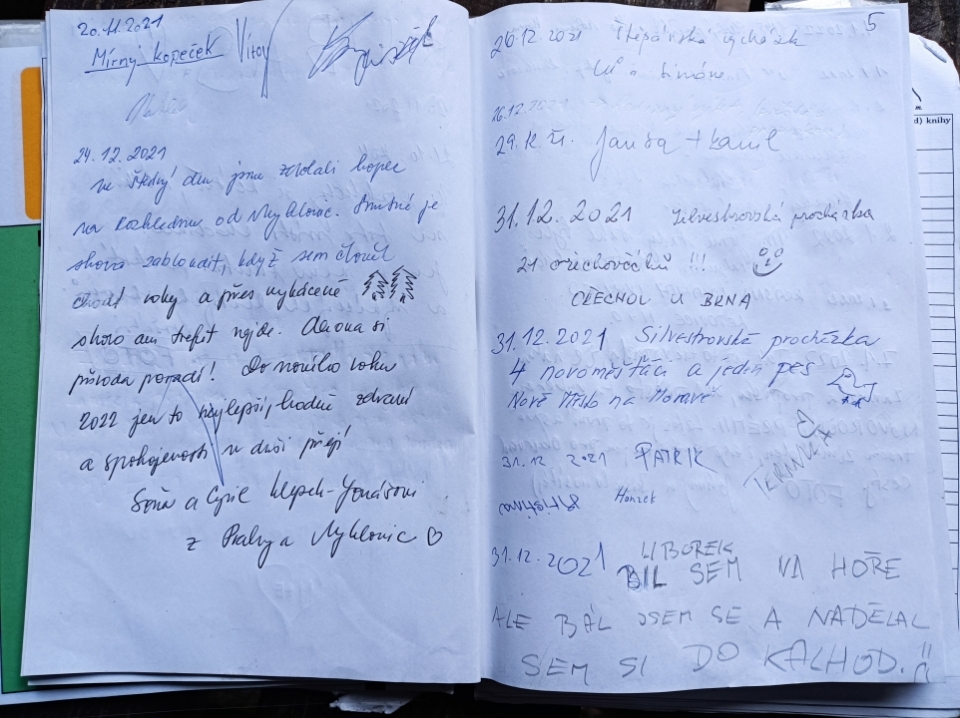 20.11.2021
Mírný kopeček Vítov
24.12.2021
Na Štědrý den jsme zdolali kopec
na Rozhlednu od Nyklovic. Smutné je
skoro zabloudit, když sem člověk
chodí roky a přes vykácené
skoro ani trefit nejde. Ale ona si
příroda poradí! Do nového roku
2022 jen to nejlepší, hodně zdraví
a spokojenosti v duši přejí
Soňa a Cyril Klepek-Jonášovi
z Prahy a Nyklovic ♡
5
26.12.2021 Štěpánská vycházka
26.12.2021
29.12.21.
31.12.2021 Silvestrovská procházka
21 ořechováčků !!!
OŘECHOV U BRNA
31.12.2021 Silvestrovská procházka
4 novoměšťáci a jeden pes
Nové Město na Moravě
31.12 2021 PATRIK
Kristina Honzek
31.12.2021 LIBOREK
BIL SEM NA HOŘE
ALE BÁL JSEM SE A NADĚLAL
SEM SI DO KALHOD.
d) knihy